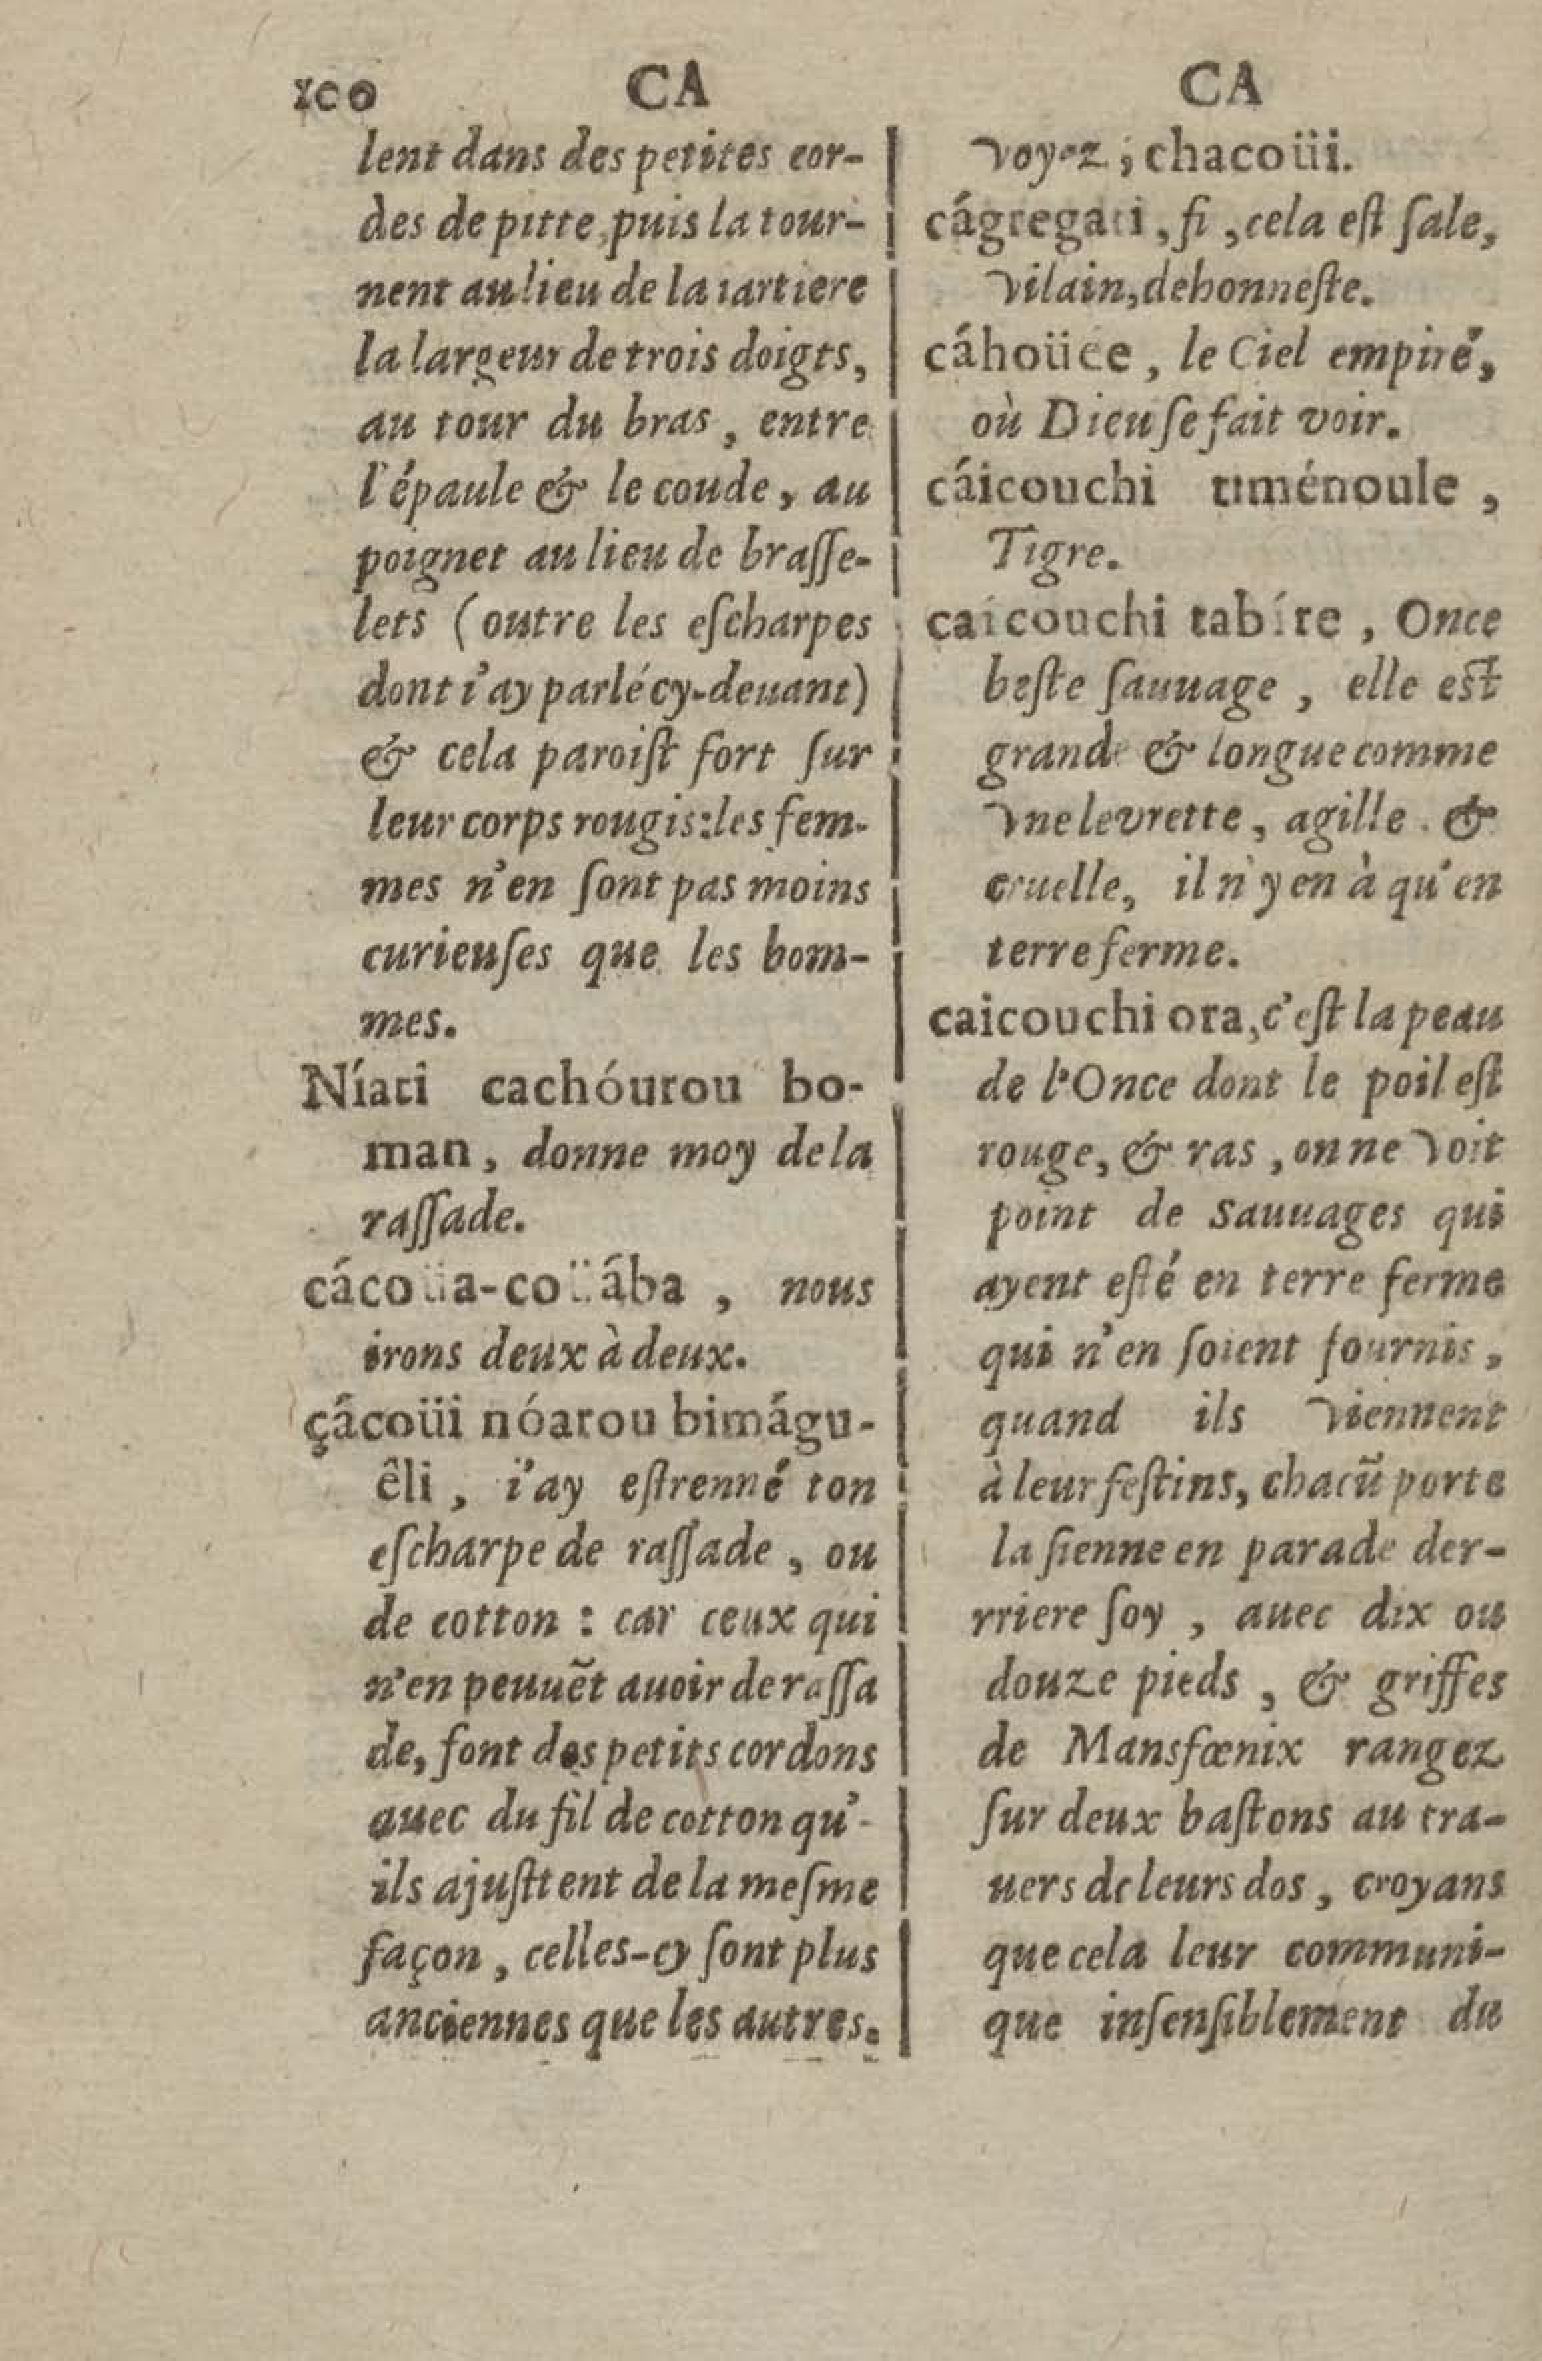 100 CA CA
lent dans des petites cor-
des de pitte, puis la tour-
nent au lieu de la iartiere
la largeur de trois doigts,
au tour du bras, entre
l'épaule & le coude, au
poignet au lieu de braſſe-
lets (outre les eſcharpes
dont i'ay parlé cy-deuant)
& cela paroiſt fort ſur
leur corps rougis: les fem-
mes n'en ſont pas moins
curieuſes que les hom-
mes.
Níati cachóurou bo-
man, donne moy de la
raſſade.
cácoüa-coüába, nous
irons deux à deux.
çácoüi nóarou bimágu-
êli, i'ay eſtrenné ton
eſcharpe de raſſade, ou
de cotton : car ceux qui
n'en peuuẽt auoir de raſſa
de, font des petits cordons
auec du fil de cotton qu'-
ils ajuſttent de la meſme
façon, celles-cy ſont plus
anciennes que les autres.
voyez; chacoüi.
cágregati, fi, cela eſt ſale,
vilain, dehonneſte.
cáhoüée, le Ciel empiré,
où Dieu ſe fait voir.
cáicouchi timénoule,
Tigre.
caícouchi tabíre, Once
beſte ſauuage, elle eſt
grande & longue comme
vne levrette, agille. &
cruelle, il n'y en à qu'en
terre ferme.
caicouchi ora, c'eſt la peau
de l'Once dont le poil eſt
rouge, & ras, on ne voit
point de Sauuages qui
ayent eſté en terre ferme
qui n'en ſoient fournis,
quand ils viennent
à leur feſtins, chacũ porte
la ſienne en parade der-
rriere ſoy, auec dix ou
douze pieds, & griffes
de Mansfœnix rangez
ſur deux baſtons au tra-
uers de leurs dos, croyans
que cela leur communi-
que inſenſiblement du